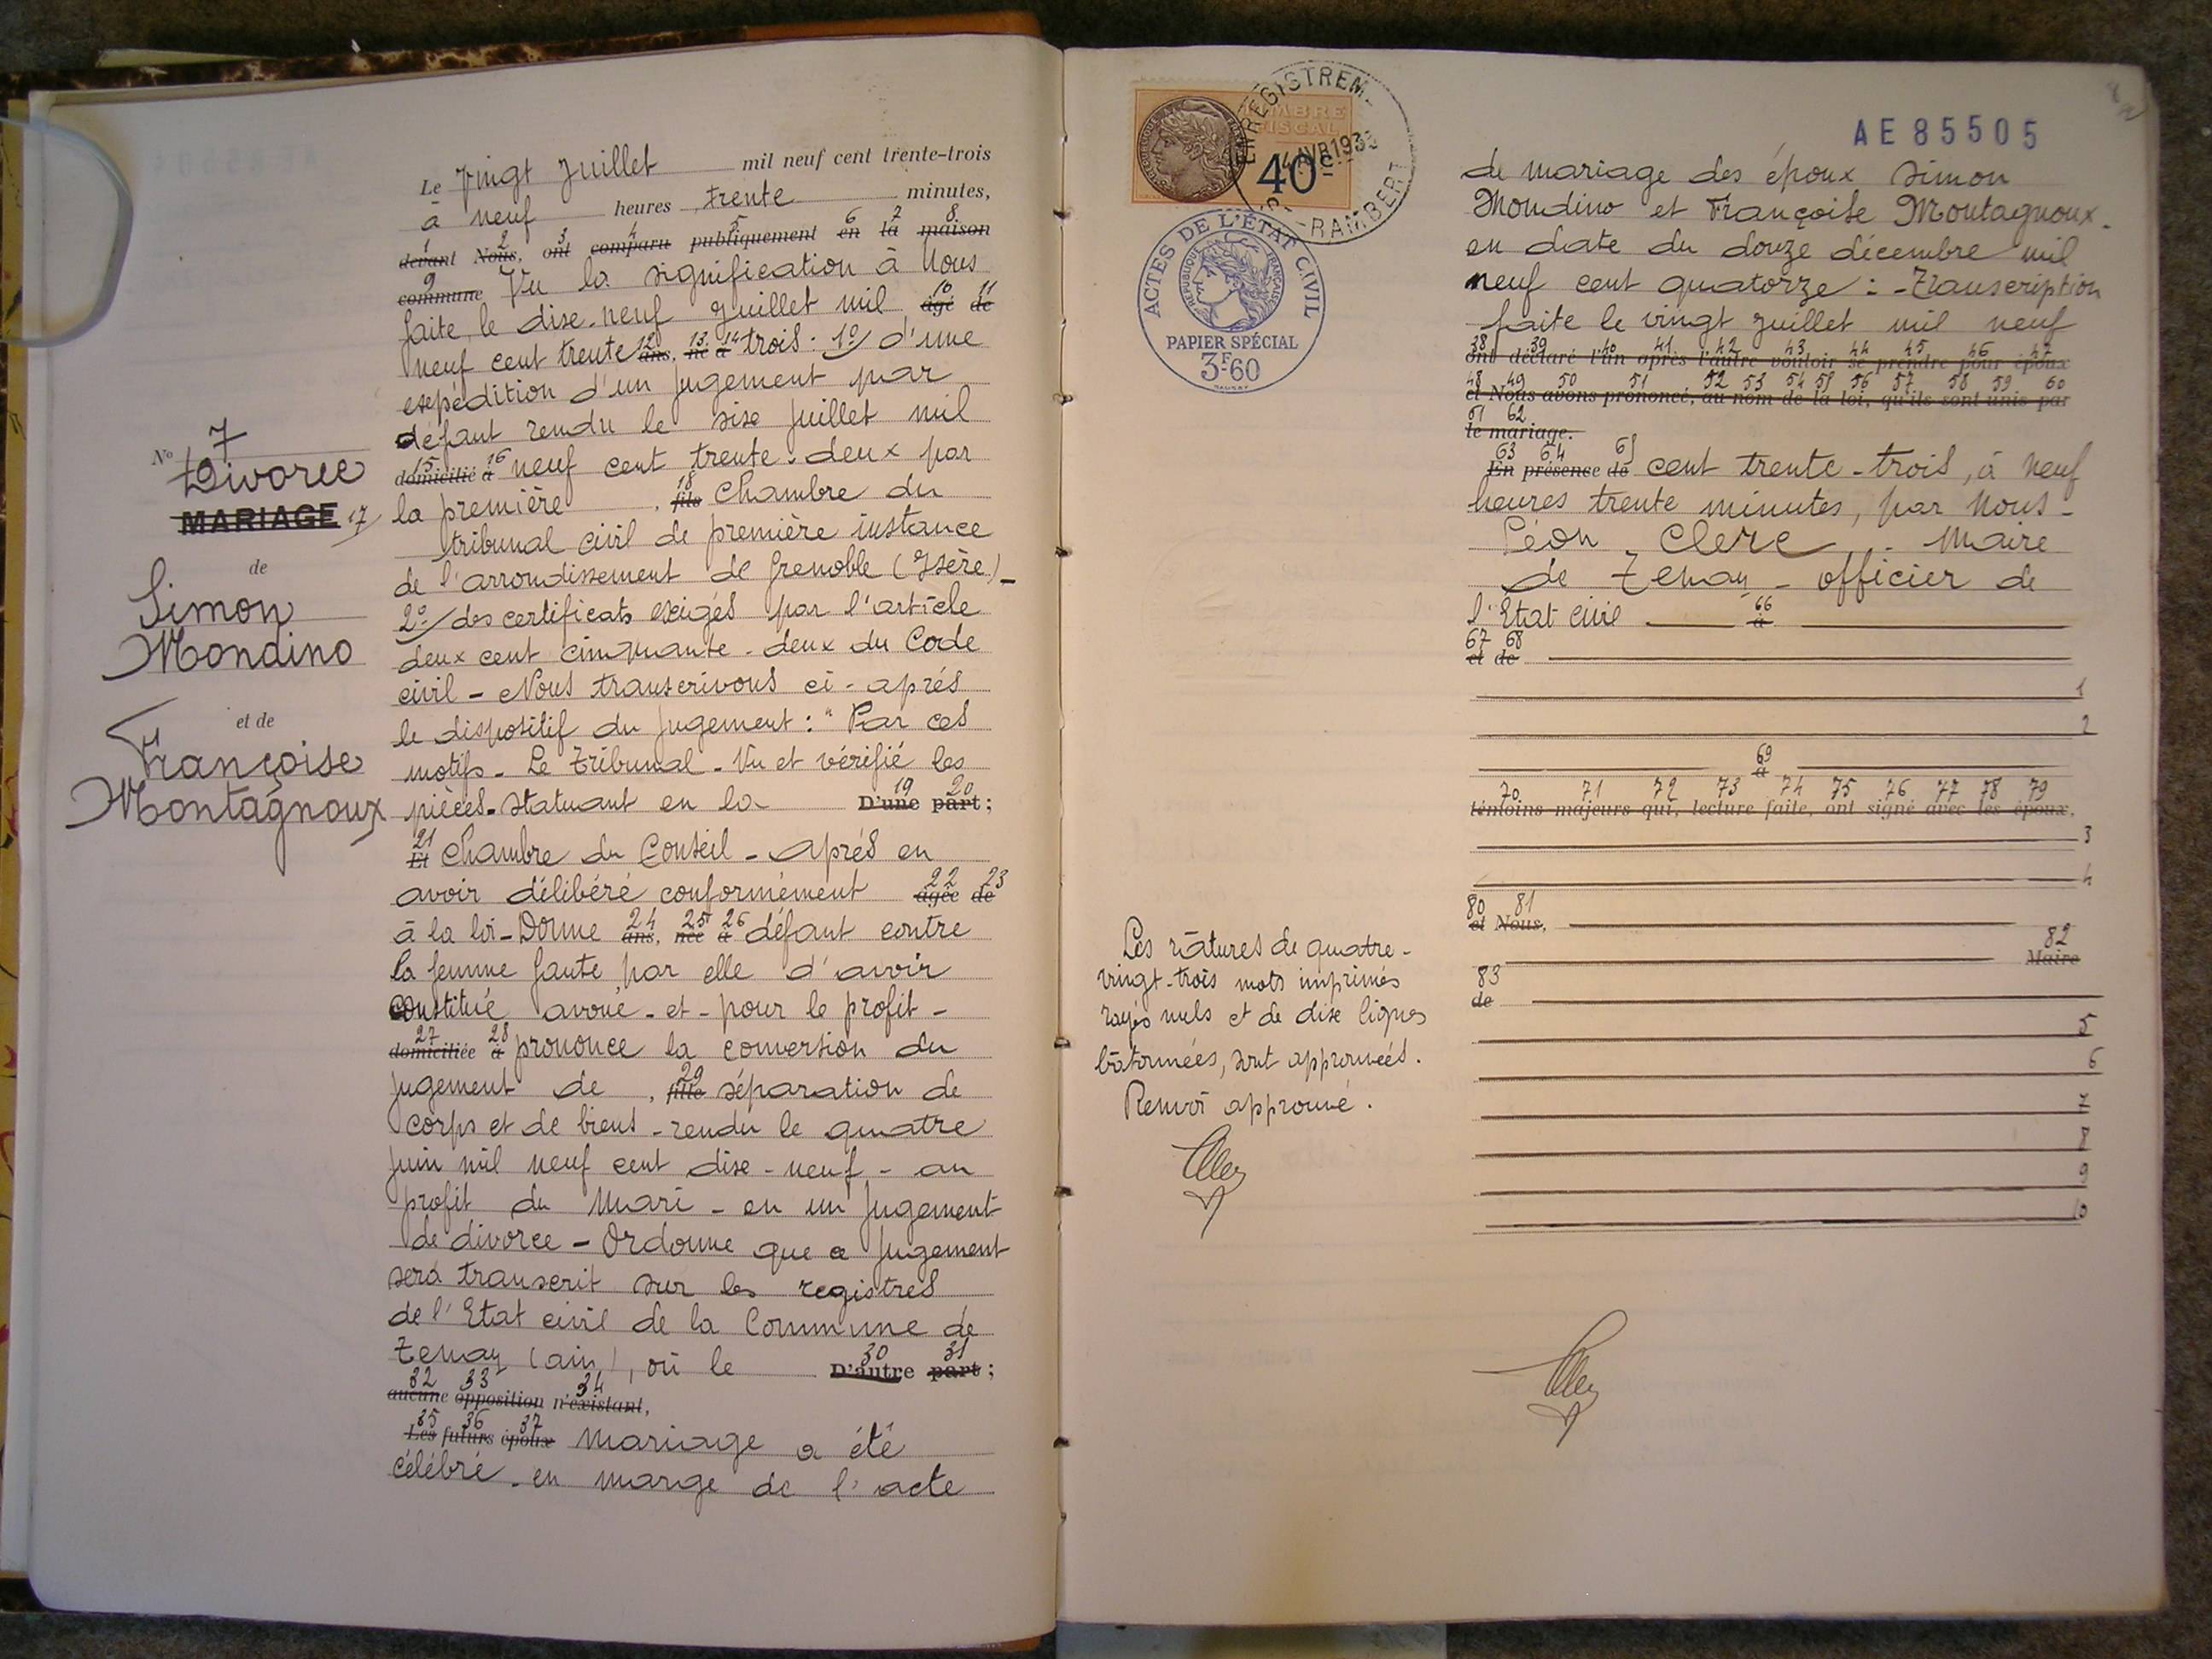 Le Vingt Juillet mil neuf cent trente-trois
à neuf heures trente minutes,
1 2 3 4 5 6 7 8
devant Nous, ont comparu publiquement en la maison
9
commune Vu la signification à Nous
faite, le dixe-neuf juillet mil 10 11 âgé de
neuf cent trente 12 ans, 13 né 14 à trois. 1°/ d'une
exepédition d'un jugement par
défaut rendu le sixe juillet mil
15 domicilié 16 à neuf cent trente-deux par
la première , 18 fils Chambre du
tribunal civil de première instance
de l'arrondissement de Grenoble (Isère)-
2°/ des certificats exigés par l'article
deux cent cinquante-deux du Code
civil - Nous transcrivons ci-après
le dispositif du jugement : "Par ces
motifs - Le Tribunal - Vu et vérifié les
pièces - Statuant en la 19 20 D'une part ;
21 Et Chambre du Conseil - Après en
avoir délibéré conformément 22 23 âgée de
à la loi - Donne 24 ans, 25 née 26 à défaut contre
la femme faute par elle d'avoir
constitué avoué - et - pour le profit -
27 domiciliée 28 à prononce la conversion du
jugement de , 29 fille séparation de
corps et de biens - rendu le quatre
juin mil neuf cent dixe-neuf - au
profit du Mari - en un jugement
de divorce - Ordonne que ce jugement
sera transcrit sur les registres
de l'Etat civil de la Commune de
Tenay (ain), où le 30 31 D'autre part ;
32 33 34
aucune opposition n'existant,
35 36 37
Les futurs époux mariage a été
célébré - en marge de l'acte
N° 7
Divorce
MARIAGE 17
de
Simon
Mondino
et de
Françoise
Montagnoux
TIMBRE
FISCAL
40c
ENREGISTREM-
AVR 193
-RAMBERT
ACTES DE L'ÉTAT CIVIL
RÉPUBLIQUE FRANÇAISE
PAPIER SPÉCIAL
3F60
AE85505
de mariage des époux Simon
Mondino et Françoise Montagnoux -
en date du douze décembre mil
neuf cent quatorze : - Transcription
faite le vingt juillet mil neuf
38 39 40 41 42 43 44 45 46 47
ont déclaré l'un après l'autre vouloir se prendre pour époux
48 49 50 51 52 53 54 55 56 57 58 59 60
et Nous avons prononcé, au nom de la loi, qu'ils sont unis par
61 62
le mariage.
63 64 65
En présence de cent trente-trois, à neuf
heures trente minutes, par Nous -
Léon Clerc, - Maire
de Tenay - officier de
l'Etat civil 66 à
67 68
et de
1
2
69
à
70 71 72 73 74 75 76 77 78 79
témoins majeurs qui, lecture faite, ont signé avec les époux,
3
4
80 81
et Nous,
82
Maire
83
de
5
6
7
8
9
10
Les ratures de quatre-
vingt-trois mots imprimés
rayés nuls et de dixe lignes
bâtonnées, sont approuvées.
Renvoi approuvé.